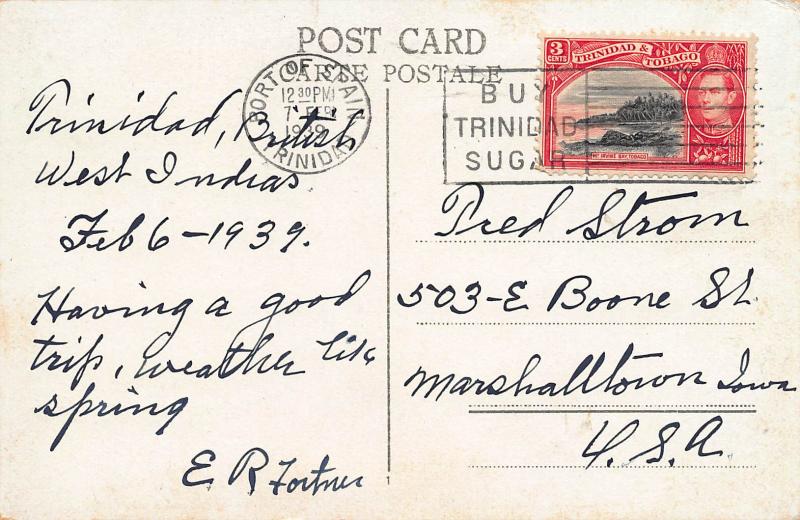 POST CARD
CARTE POSTALE
PORT OF SPAIN
12 30 PM
7 FEB
1939
TRINIDAD
BUY
TRINIDAD
SUGAR
3
CENTS
TRINIDAD &
TOBAGO
MT IRVINE BAY, TOBAGO
Trinidad, British
West Indias
Feb 6-1939.
Having a good
trip, weather like
spring
E R Fortner
Fred Strom
503-E Boone St.
Marshalltown Iowa
U.S.A.